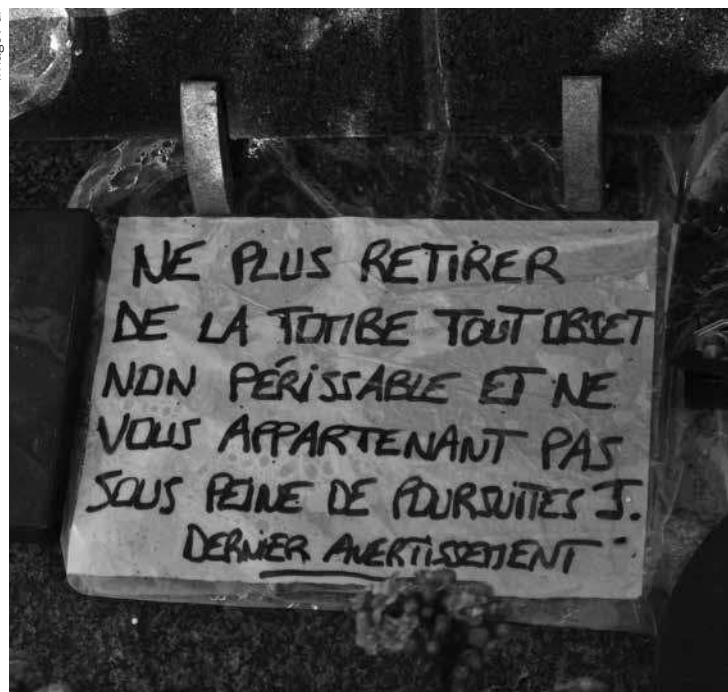 NE PLUS RETIRER
DE LA TOMBE TOUT OBJET
NON PÉRISSABLE ET NE
VOUS APPARTENANT PAS
SOUS PEINE DE POURSUITES J.
DERNIER AVERTISSEMENT